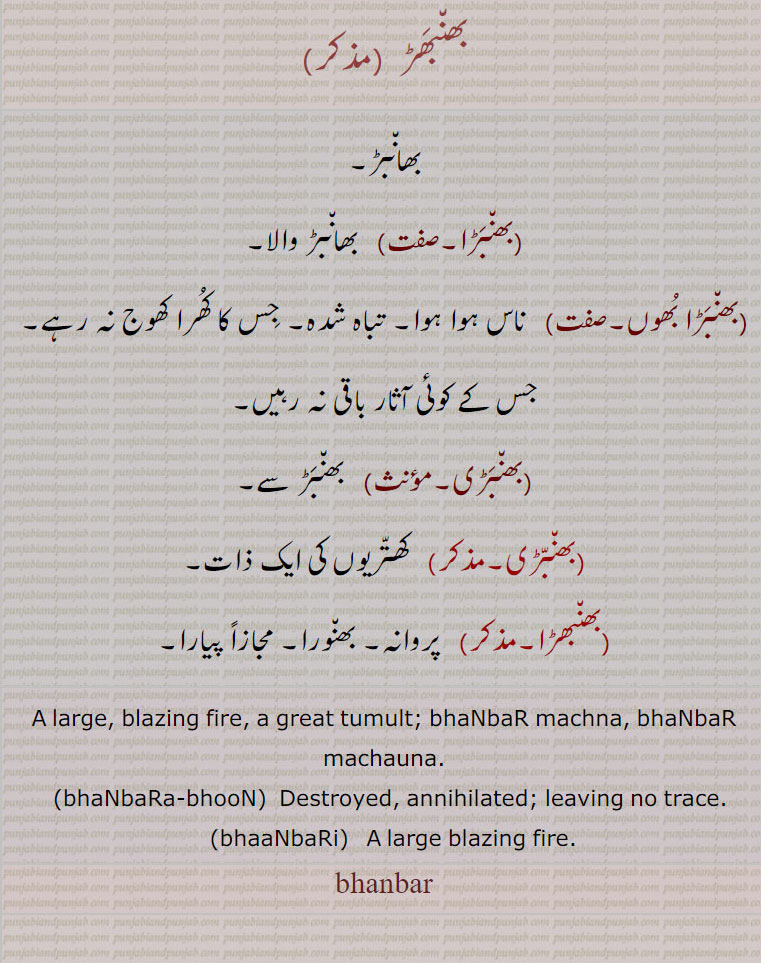 بھنّبھَڑ (مذکر)
بھانّبڑ۔
(بھنّبَڑا۔صفت) بھانّبڑ والا۔
(بھنّبَڑا بُھوں۔صفت) ناس ہوا ہوا۔ تباہ شدہ۔ جِس کا کُھرا کھوج نہ رہے۔
جس کے کوئی آثار باقی نہ رہیں۔
(بھنّبَڑی۔مؤنث) بھنّبَڑ سے۔
(بھنّبّڑی۔مذکر) کھتّریوں کی ایک ذات۔
(بھنّبھڑا۔مذکر) پروانہ۔ بھنّورا۔ مجازاً پیارا۔
A large, blazing fire, a great tumult; bhaNbaR machna, bhaNbaR
machauna.
(bhaNbaRa-bhooN) Destroyed, annihilated; leaving no trace.
(bhaaNbaRi) A large blazing fire.
bhanbar
punjabiandpunjab.com